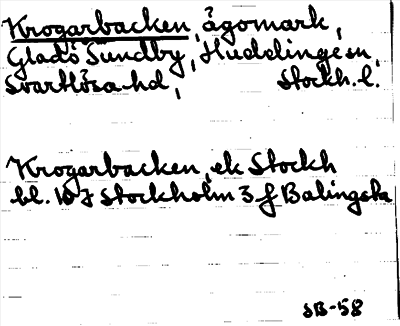 Krogarbacken, ägomark,
Gladö Sundby, Huddinge sn,
Svartlösa hd, Stockh. l.
Krogarbacken, ek Stockh
bl. 10 I Stockholm 3 f Balingsta
SB-58